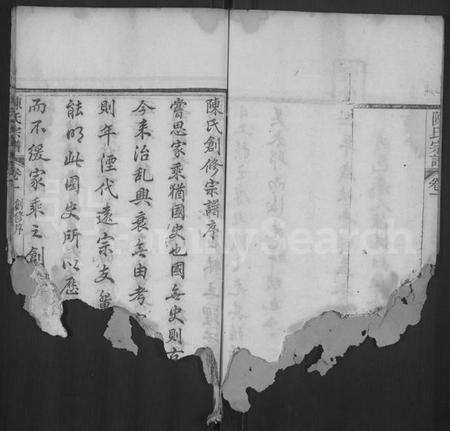 陳氏創修宗譜序
嘗思家乘猶國史也國無史則古
今來治亂興衰無由考
則年湮代遠宗支
能明此國史所以歷
而不緩家乘之創
陳氏宗譜 卷一 創修序
陳氏宗譜 卷一
FamilySearch